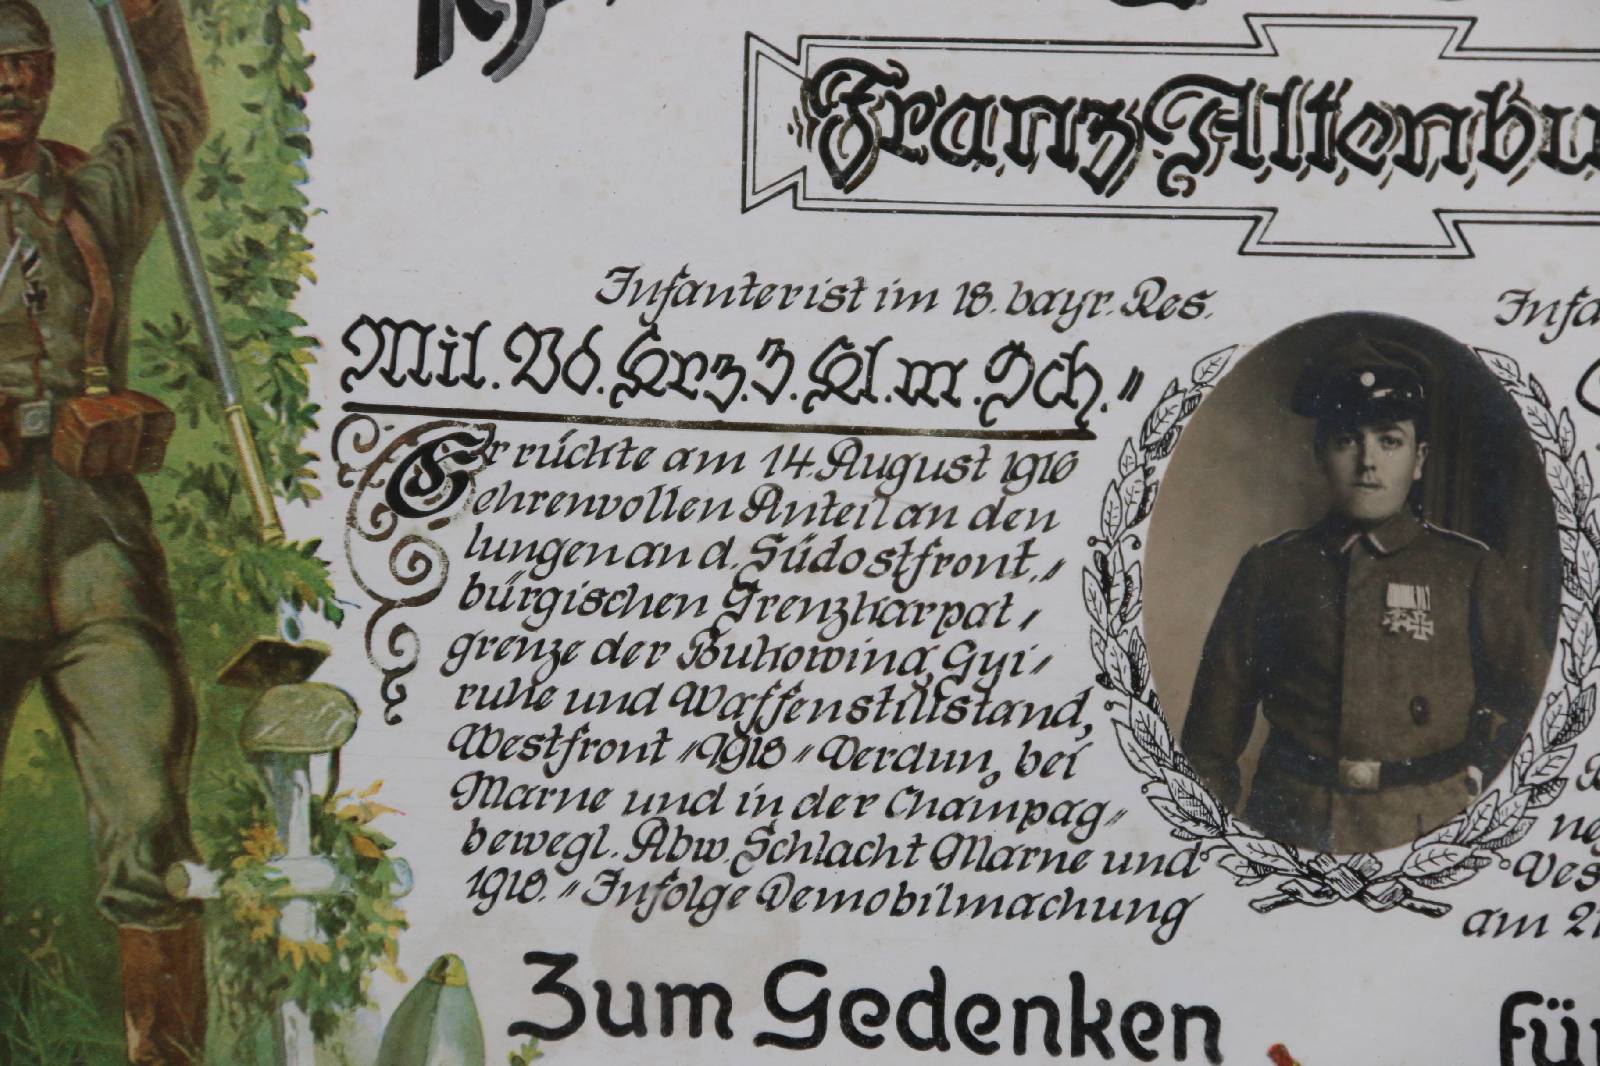 Franz Altenbu
Infanterist im 18. bayr. Res.
Infa
Mil. Vd. Krz. 3. Kl. m. Sch."
Er rückte am 14. August 1916
ehrenvollen Anteil an den
lungen an d. Südostfront."
bürgischen Grenzkarpat"
grenze der Bukowina, Gyi"
ruhe und Waffenstillstand,
Westfront "1918" Verdun, bei
Marne und in der Champag"
bewegl. Abw. Schlacht Marne und
1918." Infolge Demobilmachung
ne
Wes
am 21
Zum Gedenken
für